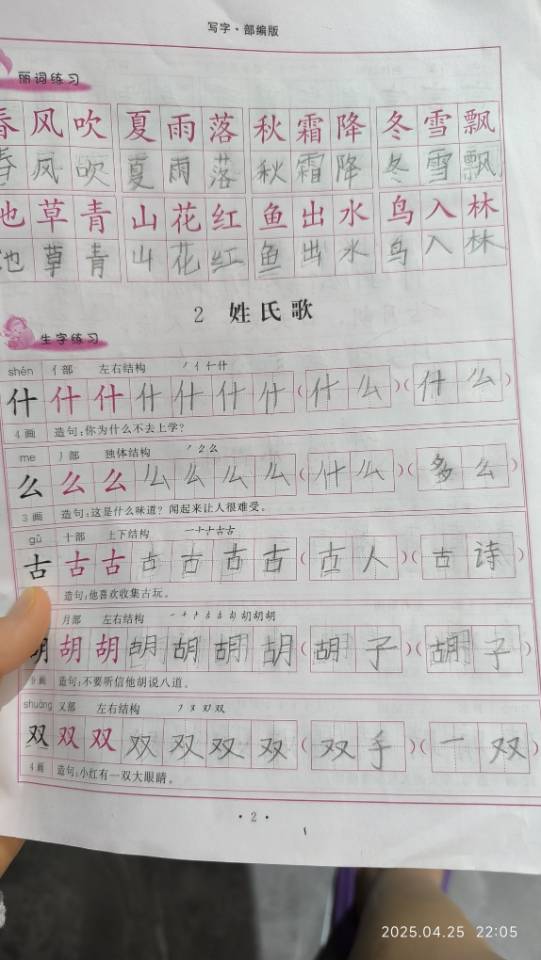 写字·部编版
丽词练习
春风吹 夏雨落 秋霜降 冬雪飘
春风吹 夏雨落 秋霜降 冬雪飘
池草青 山花红 鱼出水 鸟入林
池草青 山花红 鱼出水 鸟入林
2 姓氏歌
生字练习
shén 亻部 左右结构 ノ亻仁什
什 什 什 什 什 什 什 (什么)(什么)
4画 造句:你为什么不去上学?
me 丿部 独体结构 ノ么么
么 么 么 么 么 么 么 (什么)(多么)
3画 造句:这是什么味道?闻起来让人很难受。
gǔ 十部 上下结构 一十十古古
古 古 古 古 古 古 古 (古人)(古诗)
造句:他喜欢收集古玩。
月部 左右结构 一十古古古胡胡胡胡
胡 胡 胡 胡 胡 胡 胡 (胡子)(胡子)
9画 造句:不要听信他胡说八道。
shuāng 又部 左右结构 フヌ双双
双 双 双 双 双 双 双 (双手)(一双)
4画 造句:小红有一双大眼睛。
·2·
2025.04.25 22:05